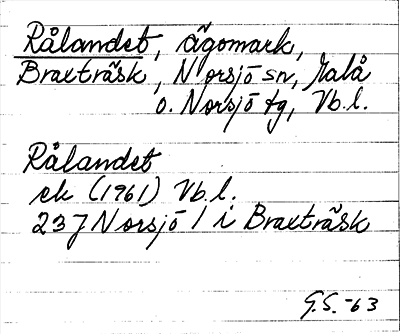 Rålandet, ägomark,
Braxträsk, Norsjö sn, Malå
o. Norsjö tg, Vb.l.
Rålandet
ek (1961) Vb.l.
23J Norsjö / i Braxträsk
G.S. -63